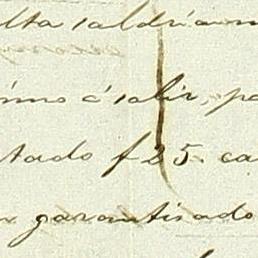 saldrian
á salir, pa
tado f 25. ca
garantisado